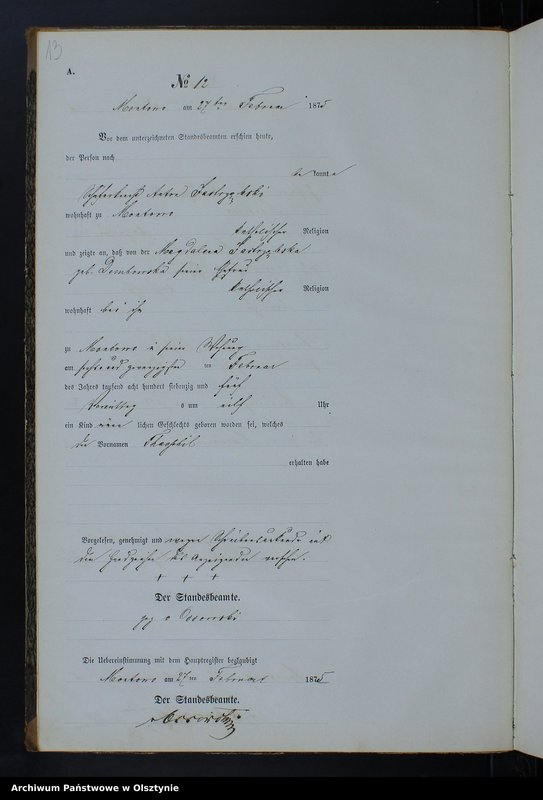 13
A.
No 12
am 27ten Februar 1875
Vor dem unterzeichneten Standesbeamten erschien heute,
der Person nach
be kannt
Jastrzębski
wohnhaft zu
katholischer Religion
und zeigte an, daß von der Magdalena Jastrzębska
geb. Dembowska seine Ehefrau
katholischer Religion
wohnhaft bei ihm
zu in seine Wohnung
am sechs und zwanzigsten ten Februar
des Jahres tausend acht hundert siebenzig und fünf
Vormittag s um elf Uhr
ein Kind männ lichen Geschlechts geboren worden sei, welches
die Vornamen Theophil
erhalten habe
Vorgelesen, genehmigt und wegen mit
den Handzeichen des Anzeigenden versehen.
+ + +
Der Standesbeamte.
gez v Ossowski
Die Uebereinstimmung mit dem Hauptregister beglaubigt
am 27ten Februar 1875
Der Standesbeamte.
v Ossowski
Archiwum Państwowe w Olsztynie